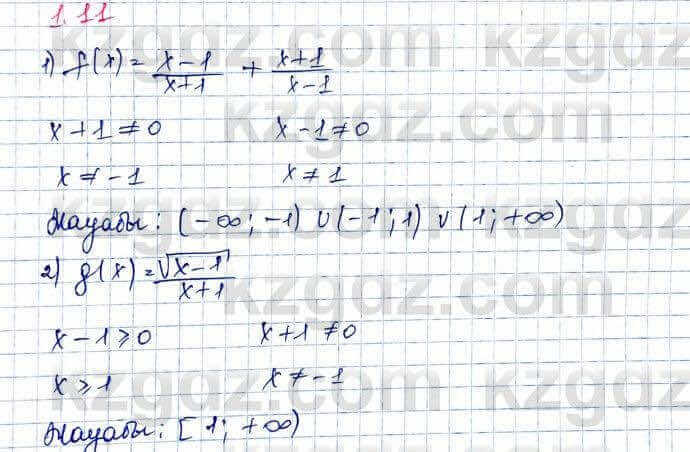 1.11
1) f(x) = (x-1)/(x+1) + (x+1)/(x-1)
x+1≠0 x-1≠0
x≠-1 x≠1
Жауабы: (-∞; -1) ∪ (-1; 1) ∪ (1; +∞)
2) g(x) = √(x-1)/(x+1)
x-1⩾0 x+1≠0
x⩾1 x≠-1
Жауабы: [1; +∞)
kzgdz.com
kzgdz.com
kzgdz.com
kzgdz.com